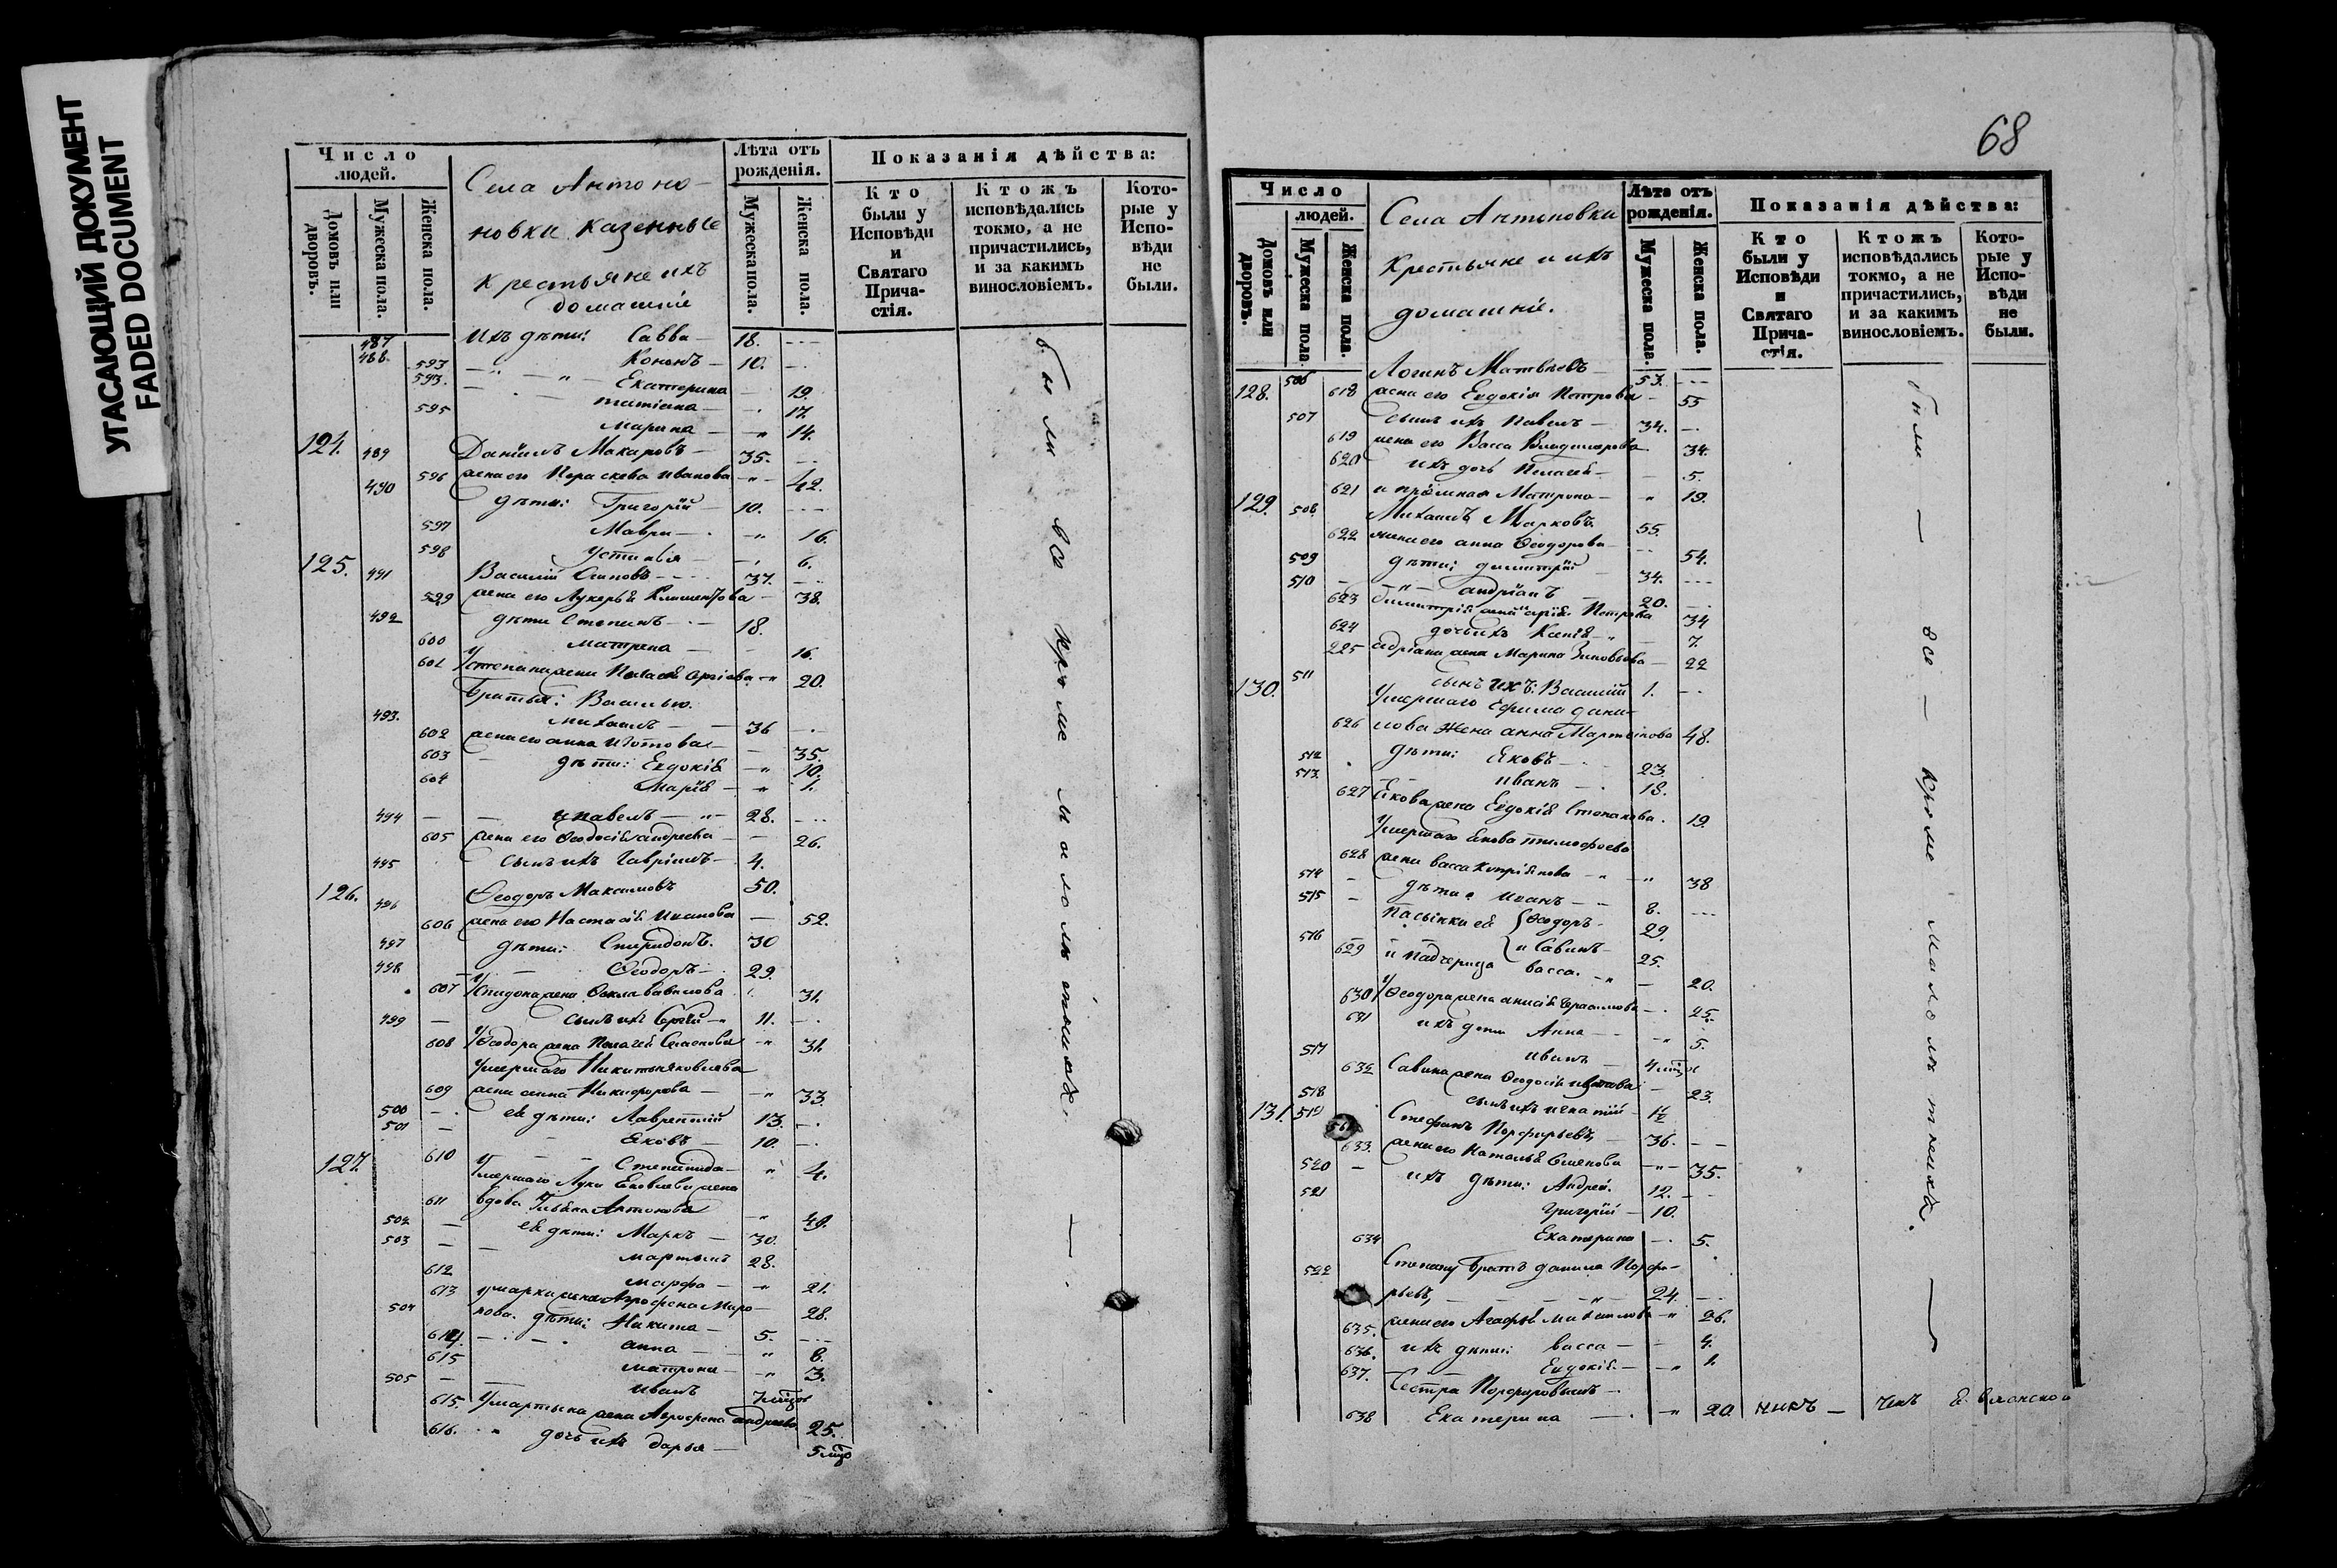 УГАСАЮЩИЙ ДОКУМЕНТ
FADED DOCUMENT
Число людей.
Домовъ или дворовъ.
Мужеска пола.
Женска пола.
Села Антоно-
новки казенные
крестьяне ихъ
домашніе
Лѣта отъ рожденія.
Мужеска пола.
Женска пола.
Показанія дѣйства:
Кто были у Исповѣди и Святаго Причастія.
Ктожъ исповѣдались токмо, а не причастились, и за какимъ винословіемъ.
Которые у Исповѣди не были.
487 Ихъ дѣти: Савва 18.
488 Кононъ 10.
593 Екатерина 19.
593. татіана 17.
595 Марина 14.
124. 489 Даніилъ Макаровъ 35.
596 жена его Параскева Иванова 42.
490 дѣти: Григорій 10.
597 Мавра 16.
598 Устинія 6.
125. 491 Василій 37.
599 жена его Лукерья 38.
492 дѣти Степанъ 18.
600 матрена 16.
601 У степана жена 20.
Братья: Василью.
493. михаилъ 36
602 жена его анна 35.
603 дѣти: Евдокія 10.
604 Марія 1.
494 и павелъ 28.
605 жена его Ѳеодосія андреева 26.
495 сынъ ихъ Гавріилъ 4.
126. 496 Ѳеодоръ Максимовъ 50.
606 жена его Настасія Иванова 52.
497 дѣти: Спиридонъ. 30
498 Ѳеодоръ 29.
607 У спидона жена Ѳекла вавилова 31.
499 сынъ ихъ Сергій 11.
608 У Ѳеодора жена Пелагея Семенова 31.
Умершаго Никиты яковлева
609 жена анна Никифорова 33.
500 ея дѣти: Лаврентій 13.
501 Яковъ 10.
610 Степанида 4.
127. Умершаго Луки Яковлева жена
611 вдова Антонова 49.
502 ея дѣти: Маркъ 30.
503 мартынъ 28.
612 марфа 21.
613 у марка жена Агрофена Миро-
нова. 28.
504 дѣти: Никита 5.
614. анна 8.
615 матрона 3.
505 иванъ
615. У мартына жена Агрофена андреева 25.
616. дочь ихъ дарья
были все кроме малолѣтнихъ.
68
Число людей.
Домовъ или дворовъ.
Мужеска пола.
Женска пола.
Села Антоновки
Крестьяне и ихъ
домашніе.
Лѣта отъ рожденія.
Мужеска пола.
Женска пола.
Показанія дѣйства:
Кто были у Исповѣди и Святаго Причастія.
Ктожъ исповѣдались токмо, а не причастились, и за какимъ винословіемъ.
Которые у Исповѣди не были.
128. 506 Логинъ Матвѣевъ 53.
618 жена его Евдокія Петрова 55
507 сынъ ихъ Павелъ 34.
619 жена его Васса 34.
620 ихъ дочь Пелагея 5.
621 и Матрона 19.
129. 508 Михаилъ Марковъ 55.
622 жена его анна Ѳеодорова 54.
509 дѣти: димитрій 34.
510 андріанъ 20.
623 димитрія жена Петрова 34
624 дочь ихъ Ксенія 7.
225 адріана жена Марина Зиновьева 22
511 сынъ ихъ: Василій 1.
130. Умершаго Ефима дани-
626 лова жена анна Мартынова 48.
512 дѣти: Яковъ 23.
513 иванъ 18.
627 Якова жена Евдокія Степанова. 19.
Умершаго Якова тимофеева
628 жена васса 38
514 дѣти: Иванъ 8.
515 Пасынки ея Ѳеодоръ 29.
516 и Савинъ 25.
629 и падчерица васса. 20.
630 У Ѳеодора жена анисія Герасимова 25.
631 ихъ дѣти Анна 5.
517 иванъ
632 Савина жена Ѳеодосія 23.
518 сынъ ихъ игнатій 1/2
131. 519 Стефанъ Порфирьевъ 36.
633. жена его Наталья Семенова 35.
520 ихъ дѣти: Андрей. 12.
521 Григорій 10.
634 Екатерина 5.
522 Степану братъ данила Порфи-
рьевъ, 24.
635. жена его Агафья михаилова 26.
636. ихъ дѣти: васса 4.
637. Евдокія 1.
Сестра
638 Екатерина 20.
были все кроме малолѣтнихъ.